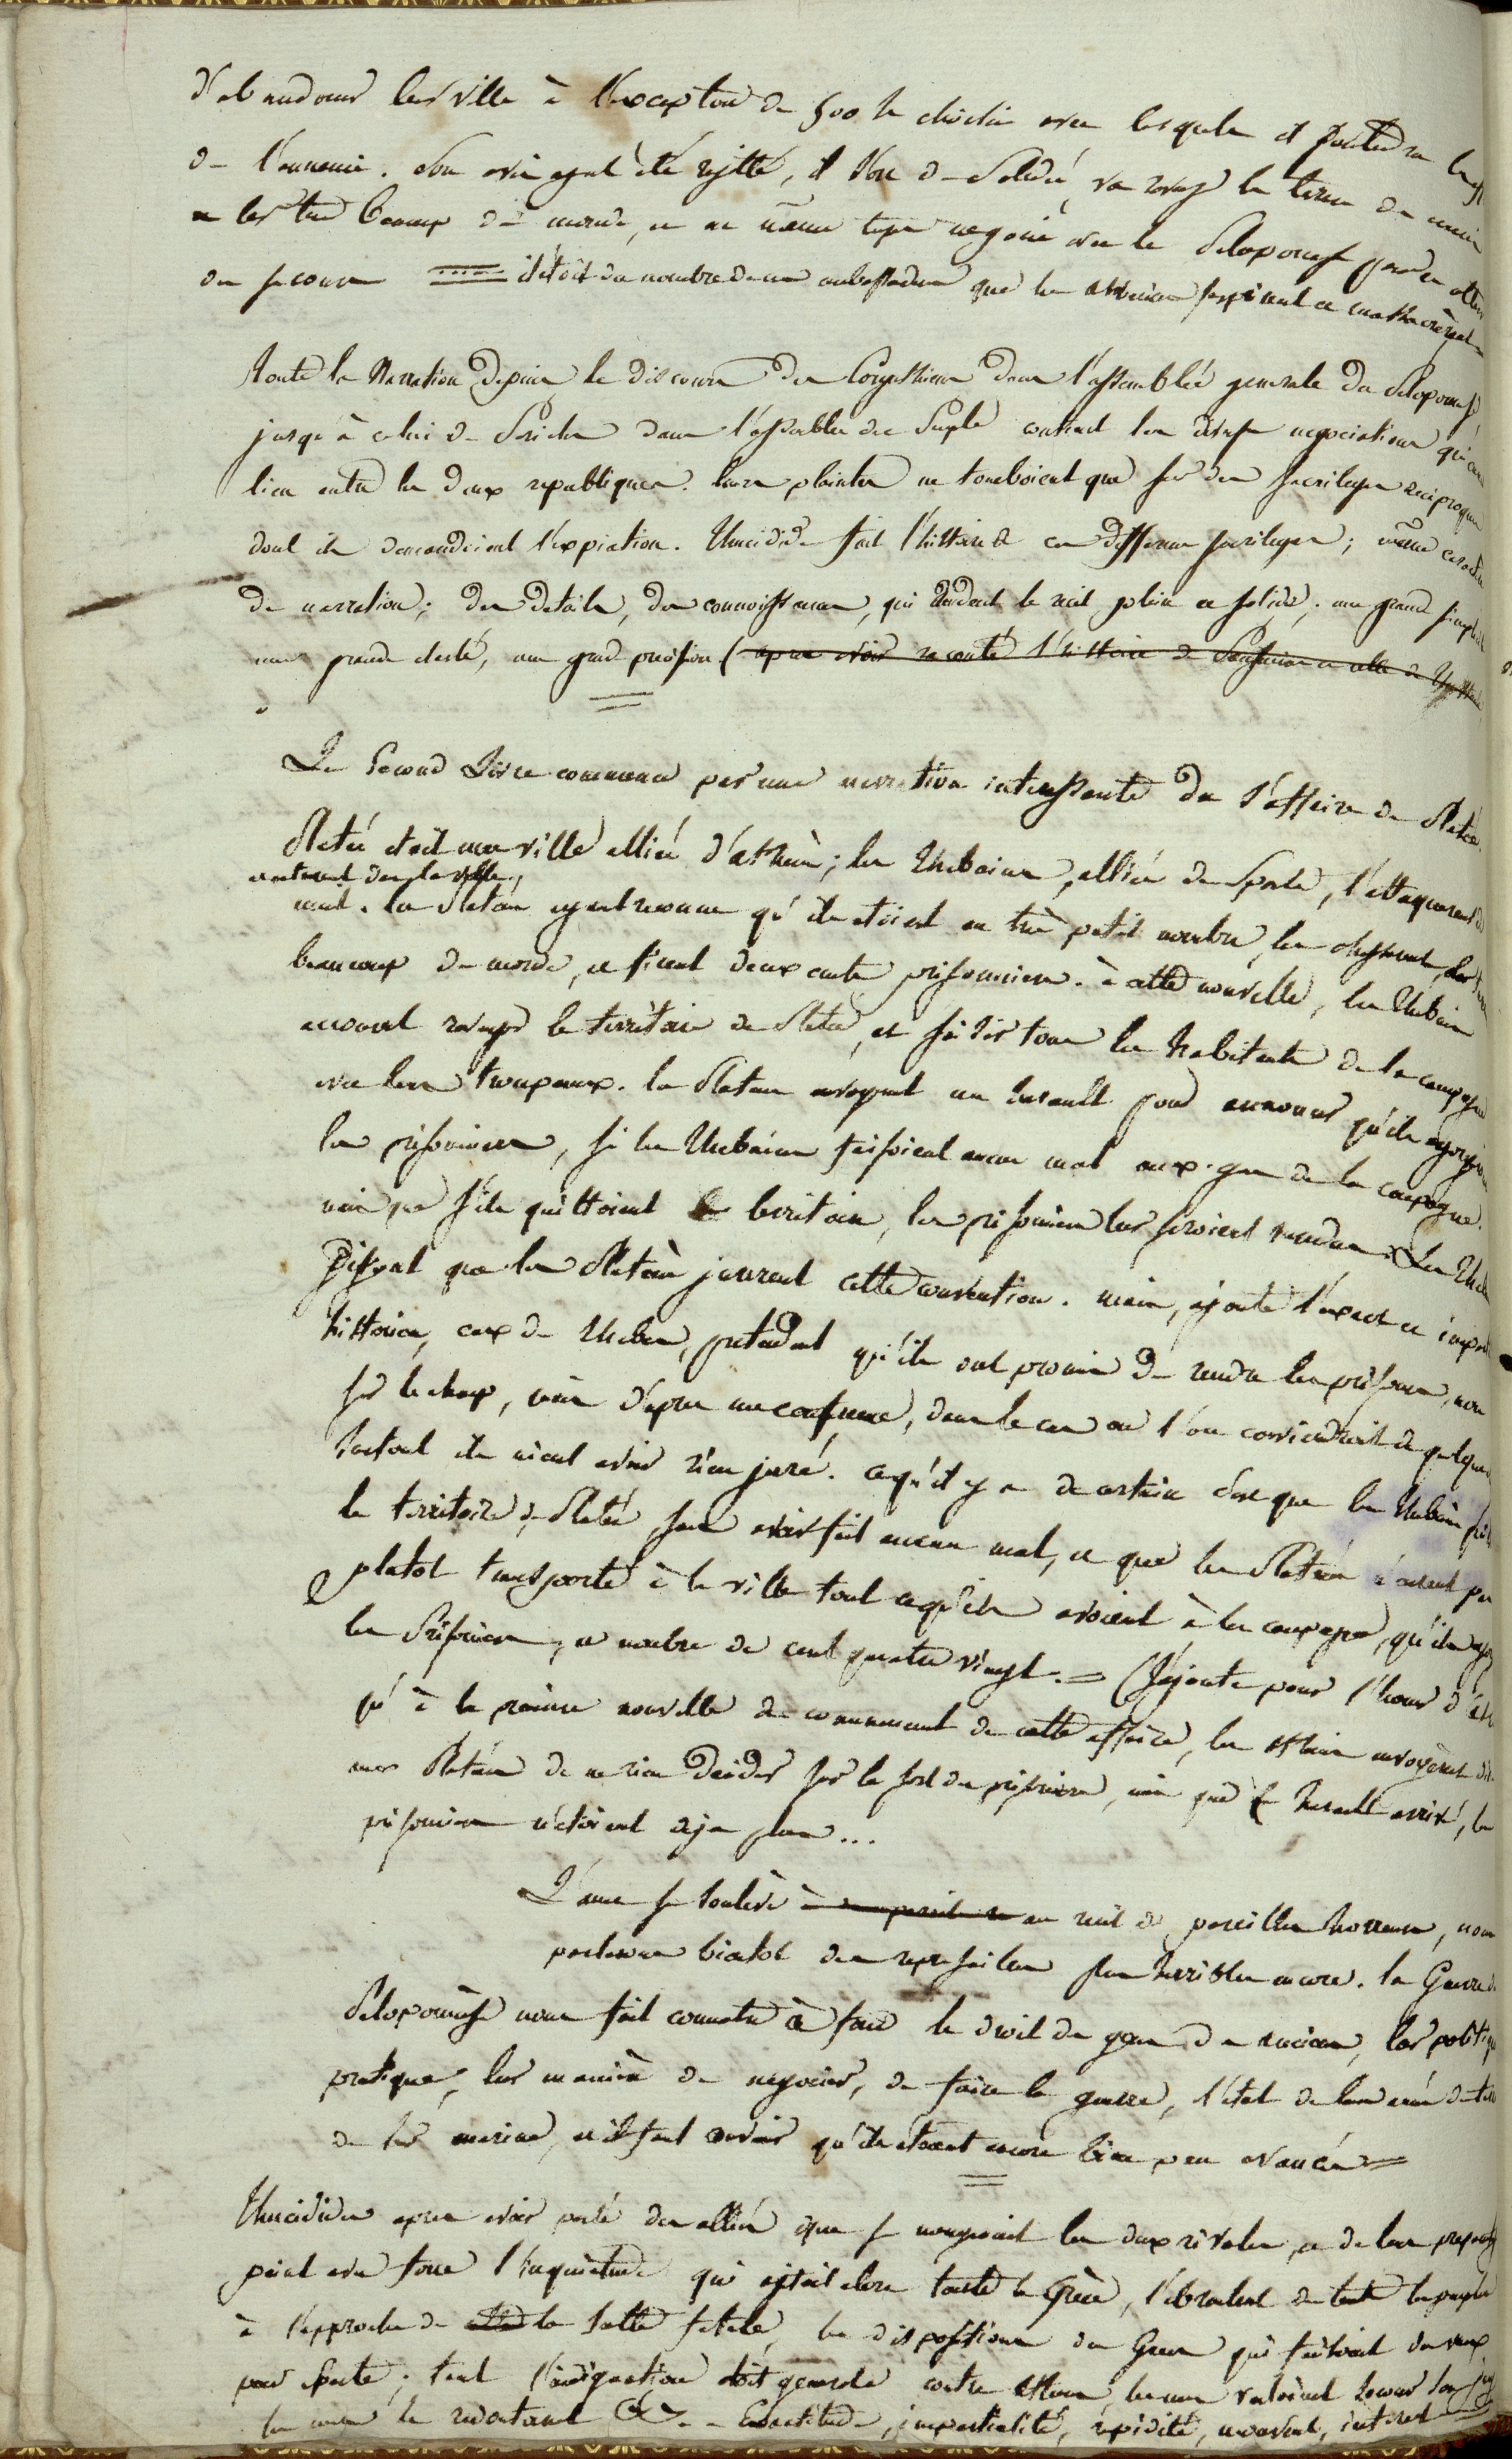 d'abandonner leur ville à l'exception de 500 h choisis avec lesquels il
de l'ennemi. Son avis ayant été rejetté, il
du monde, et en même temps negocié avec le Peloponese pour en
du secours il étoit du nombre de ces ambassadeurs que les athéniens surprirent et massacrèrent
toute la Narration depuis le discours des Corynthiens dans l'assemblée generale du Peloponese,
jusqu'à celui de Periclès dans l'assemblée du Peuple contient les diverses negociations
lieu entre les deux republiques. leurs plaintes ne tomboient que sur des sacrileges reciproques
dont ils demandoient l'expiation. Thucidide fait l'histoire de ces differens sacrileges; même caractère
de narration; des details, des connoissances, qui rendent le récit plein et solide; une grande simplicité
une grande clarté, une grande précision (après avoir raconté l'histoire de Pausanias et celle de Themistocle
Le Second Livre commence par une narration interessante de l'affaire de Platée.
Platée étoit une ville alliée d'athènes; les Thebains, alliés de Sparte, l'attaquerent
entrent dans la ville,
les Platéens ayant reconnu qu'ils etoient en très petit nombre, les chassent,
beaucoup de monde, et firent deux cents prisonniers. à cette nouvelle, les Thebains
accourent ravager le territoire de Platée, et saisir tous les habitants de la campagne
avec leurs troupeaux. les Platéens envoyent un herault pour annoncer qu'ils egorgeront
les prisonniers, si les Thebains faisoient aucun mal aux gens de la campagne.
mais que s'ils quittoient le territoire, les prisonniers leur seroient rendus. Les
disent que les Platéens jurerent cette convention. mais, ajoute l'exact et
historien, ceux de Thebes, pretendent qu'ils ont promis de rendre les prisonniers, non
sur le champ, mais d'après une conference, dans le cas où l'on conviendroit de quelque
surtout ils nient avoir rien juré. ce qu'il y a de certain c'est que les Thebains
le territoire de Platée, sans avoir fait aucun mal, et que les Platéens n'eurent pas
plutot transporté à la ville tout ce qu'ils avoient à la campagne, qu'ils
les Prisonniers, au nombre de cent quatre vingt. = (J'ajoute pour l'honneur
qu'à la première nouvelle du commencement de cette affaire, les Athéniens envoyèrent
aux Platéens de ne rien decider sur le sort des prisonniers, mais quand le herault arriva, les
prisonniers n'étoient deja plus...
L'ame se soulève à au recit de pareilles horreurs, nous
parlerons bientot des represailles plus terribles encore. la Guerre du
Peloponèse nous fait connoitre à fond le droit des gens des anciens, leur politique
pratique, leur manière de negocier, de faire la guerre, l'état de leur armée de terre
de leur marine, et il faut avouer qu'ils etoient encore bien peu avancés =
Thucidide après avoir parlé des alliés que se menageoient les deux rivales, et de leurs preparatifs
peint avec force l'inquiétude qui agitoit alors toute la Grèce, l'ebranlement de tous les peuples
à l'approche de la lutte fatale, les dispositions des Grecs qui faisoient des vœux
pour Sparte; tant l'indignation étoit generale contre Athènes, les uns vouloient secouer son joug
les autres le redoutant &c. - Exactitude, impartialité, rapidité, mouvement, interet